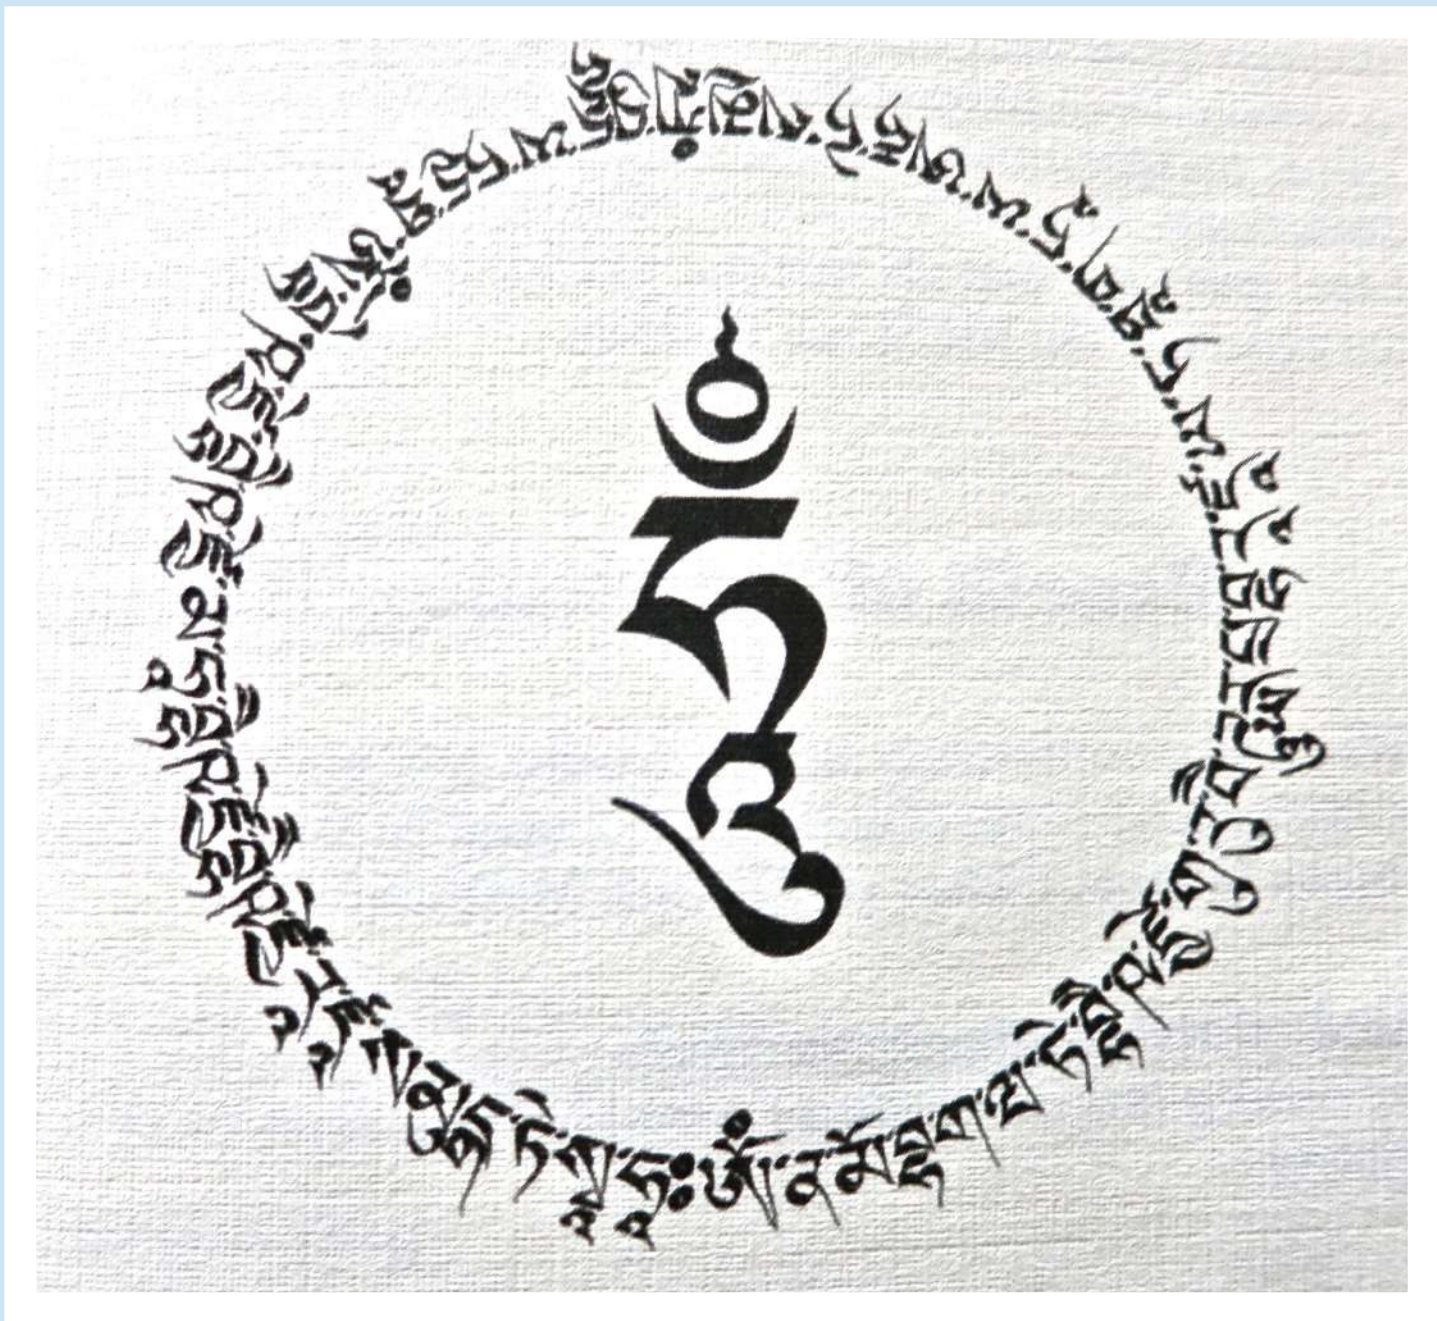 ཨོཾ་ན་མོ་བྷ་ག་ཝ་ཏེ་བྷཻ་ཥ་ཛྱེ་གུ་རུ་བཻ་ཌཱུརྱ་པྲ་བྷ་རཱ་ཛཱ་ཡ་ཏ་ཐཱ་ག་ཏཱ་ཡ་ཨརྷ་ཏེ་སམྱཀྶཾ་བུདྡྷཱ་ཡ་ཏདྱ་ཐཱ་ཨོཾ་བྷཻ་ཥ་ཛྱེ་བྷཻ་ཥ་ཛྱེ་མ་ཧཱ་བྷཻ་ཥ་ཛྱེ་བྷཻ་ཥ་ཛྱེ་རཱ་ཛཱ་ས་མུདྒ་ཏེ་སྭཱ་ཧཱཿ
ཧཱུྃ